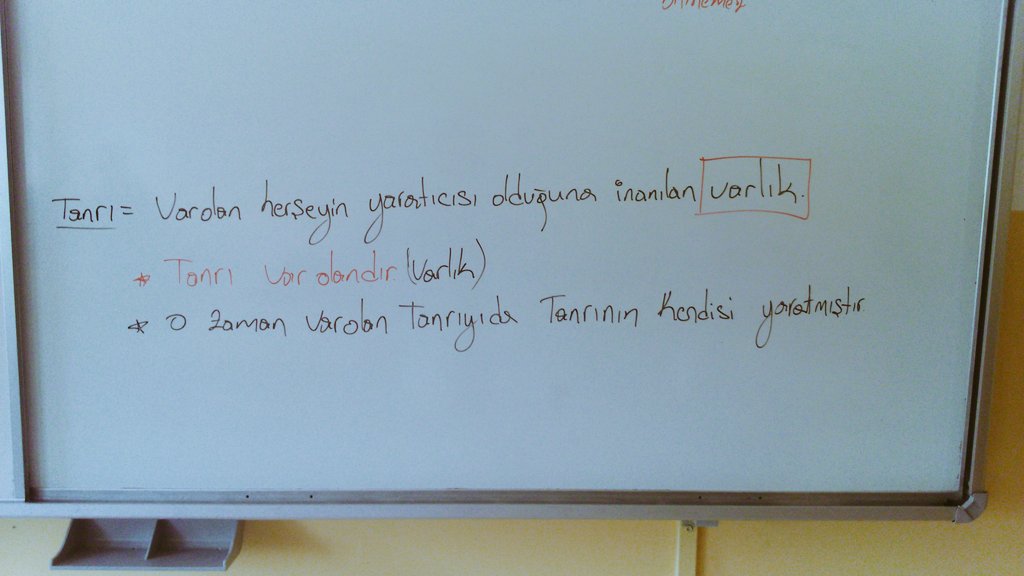 Tanrı = Varolan herşeyin yaratıcısı olduğuna inanılan varlık.
* Tanrı var olandır. (Varlık)
* O zaman varolan Tanrıyıda Tanrının kendisi yaratmıştır.